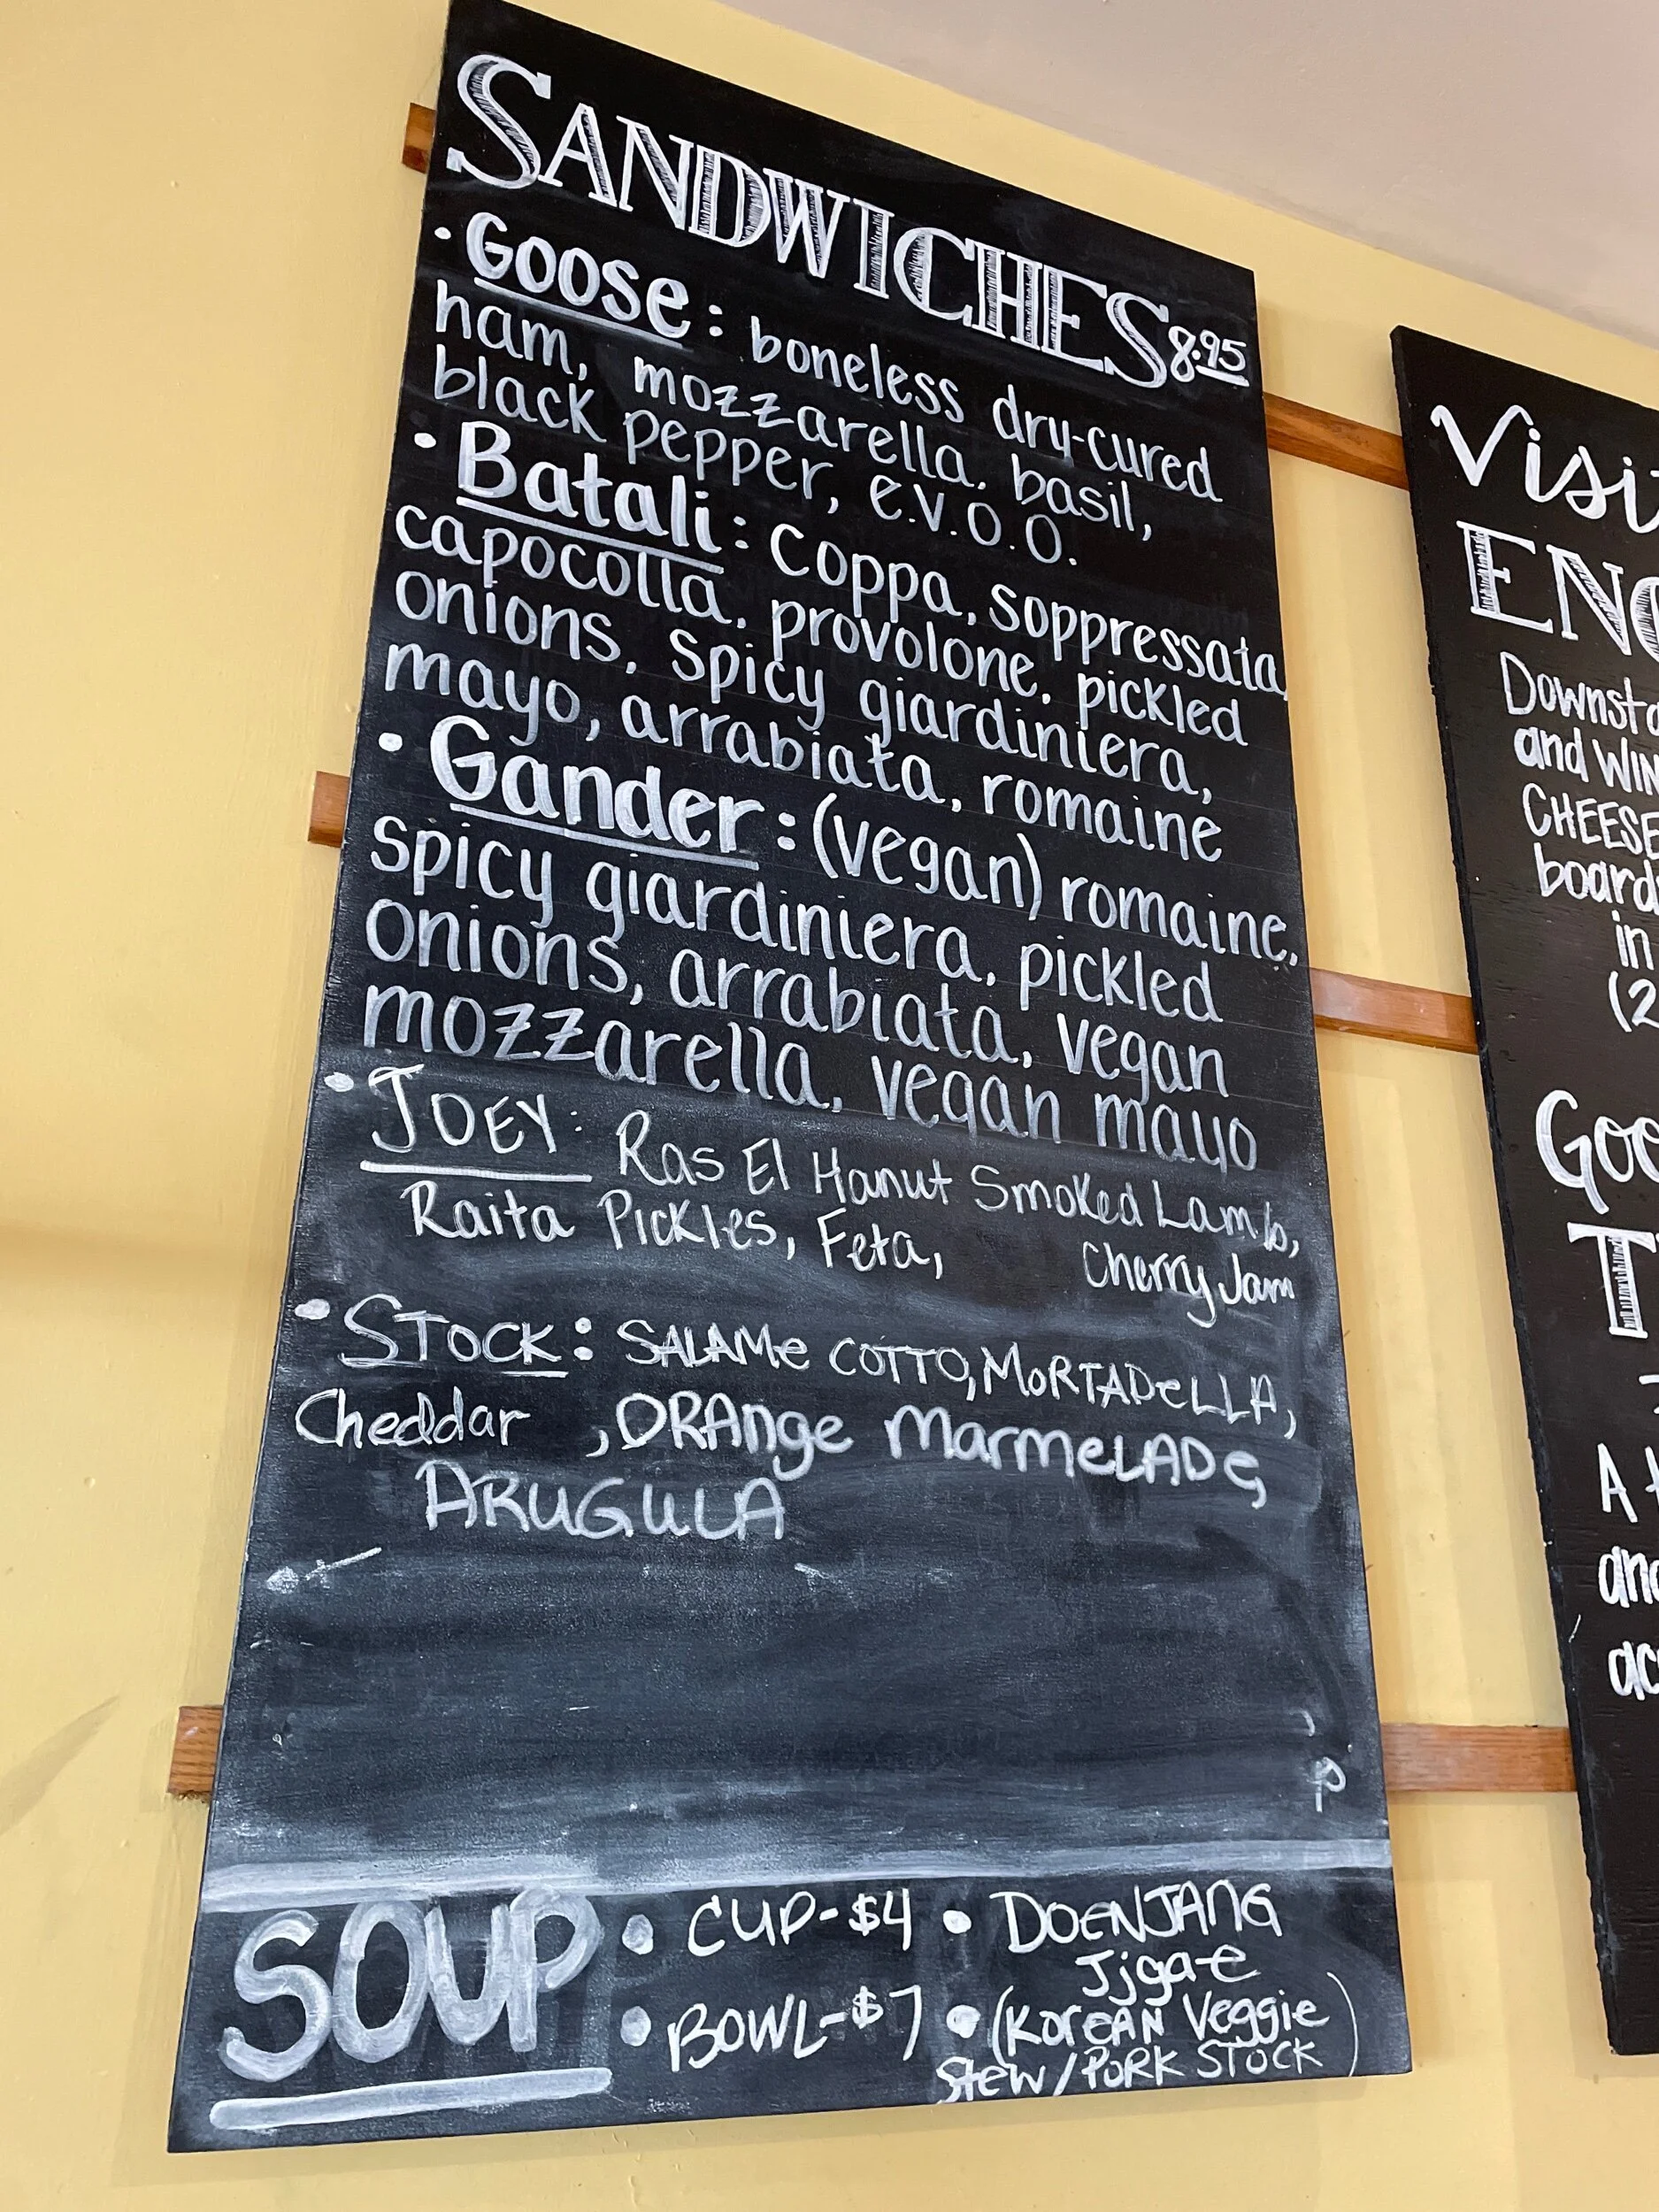 SANDWICHES 8.95
• GOOSE: boneless dry-cured
ham, mozzarella, basil,
black pepper, e.v.o.o.
• Batali: Coppa, soppressata,
capocolla, provolone, pickled
onions, spicy giardiniera,
mayo, arrabiata, romaine
• Gander: (vegan) romaine,
spicy giardiniera, pickled
onions, arrabiata, vegan
mozzarella, vegan mayo
• JOEY: Ras El Hanut Smoked Lamb,
Raita Pickles, Feta, Cherry Jam
• STOCK: SALAMe COTTO, MoRTADeLLA,
Cheddar, ORAnge MarmeLADe,
ARUGULA
SOUP • CUP-$4 • DOENJANG
Jjgae
• BOWL-$7 • (KoreAN Veggie
Stew/PORK STOCK)
Visi
EN
Downst
and WIN
CHEESE
board
in
(2
Goo
T
A
and
ac